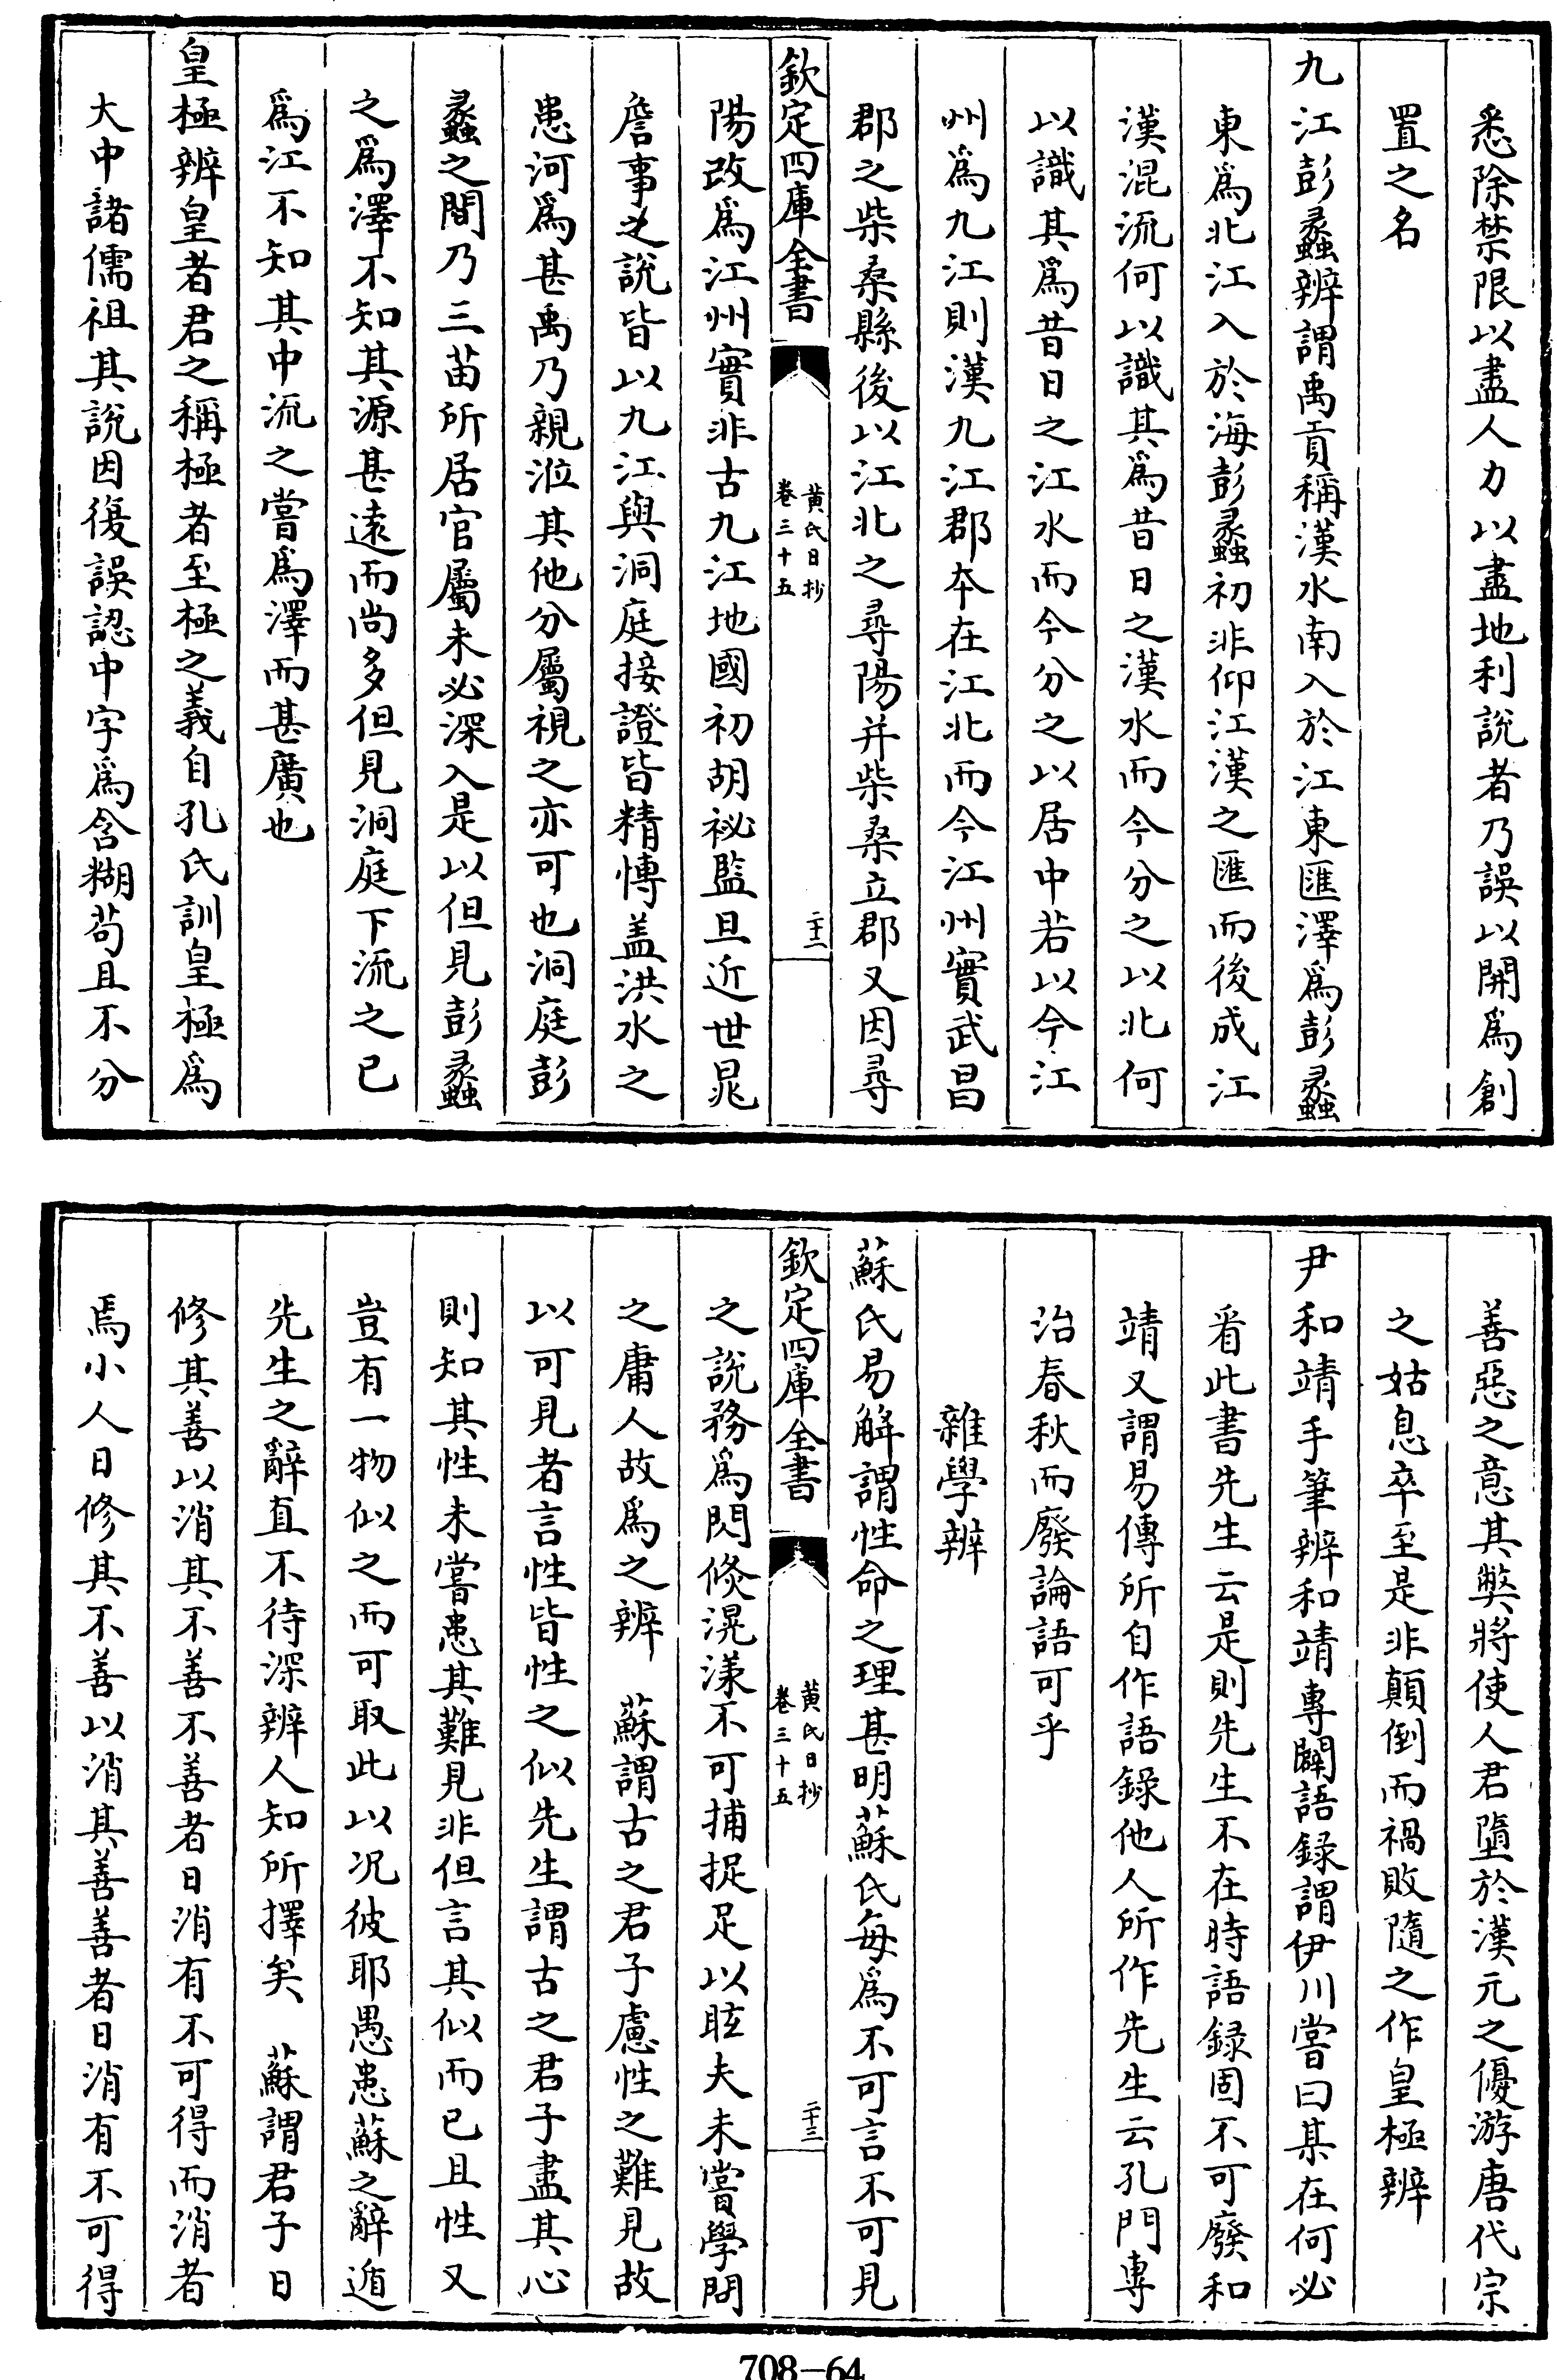 悉除禁限以盡人力以盡地利說者乃誤以開為創
置之名
九江彭蠡辨謂禹貢稱漢水南入於江東匯澤為彭蠡
東為北江入於海彭蠡初非仰江漢之匯而後成江
漢混流何以識其為昔日之漢水而今分之以北何
以識其為昔日之江水而今分之以居中若以今江
州為九江則漢九江郡本在江北而今江州實武昌
郡之柴桑縣後以江北之尋陽并柴桑立郡又因尋
欽定四庫全書
黄氏日抄
卷三十五
二十二
陽改為江州實非古九江地國初胡祕監旦近世晁
詹事之說皆以九江與洞庭接證皆精博盖洪水之
患河為甚禹乃親涖其他分屬視之亦可也洞庭彭
蠡之間乃三苗所居官屬未必深入是以但見彭蠡
之為澤不知其源甚遠而尚多但見洞庭下流之已
為江不知其中流之嘗為澤而甚廣也
皇極辨皇者君之稱極者至極之義自孔氏訓皇極為
大中諸儒祖其說因復誤認中字為含糊苟且不分
善惡之意其弊將使人君墮於漢元之優游唐代宗
之姑息卒至是非顛倒而禍敗隨之作皇極辨
尹和靖手筆辨和靖專闢語録謂伊川嘗曰某在何必
看此書先生云是則先生不在時語録固不可廢和
靖又謂易傳所自作語錄他人所作先生云孔門專
治春秋而廢論語可乎
雜學辨
蘇氏易解謂性命之理甚明蘇氏每為不可言不可見
欽定四庫全書
黄氏日抄
卷三十五
二十三
之說務為閃倐滉漾不可捕捉足以眩夫未嘗學問
之庸人故為之辨　蘇謂古之君子慮性之難見故
以可見者言性皆性之似先生謂古之君子盡其心
則知其性未嘗患其難見非但言其似而已且性又
豈有一物似之而可取此以况彼耶愚患蘇之辭遁
先生之辭直不待深辨人知所擇矣　蘇謂君子日
修其善以消其不善不善者日消有不可得而消者
焉小人日修其不善以消其善善者日消有不可得
708-64